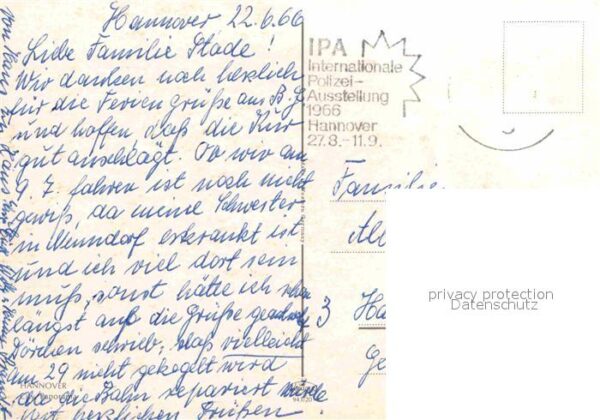 Hannover 22.6.66
Liebe Familie Stade!
Wir danken noch herzlich
für die Feriengrüße aus B. G.
und hoffen daß die Kur
gut anschlägt. Ob wir am
9. 7. fahren ist noch nicht
gewiß, da meine Schwester
in Wenndorf erkrankt ist
und ich viel dort sein
muß, sonst hätte ich schon
längst auf die Grüße
Dörchen schrieb, daß vielleicht
am 29 nicht gekegelt wird
da die Bahn repariert werde
herzlichen Grüßen
von Haus zu Haus
IPA
Internationale
Polizei-
Ausstellung
1966
Hannover
27.8.-11.9.
Familie
3 Ha
HANNOVER
privacy protection
Datenschutz